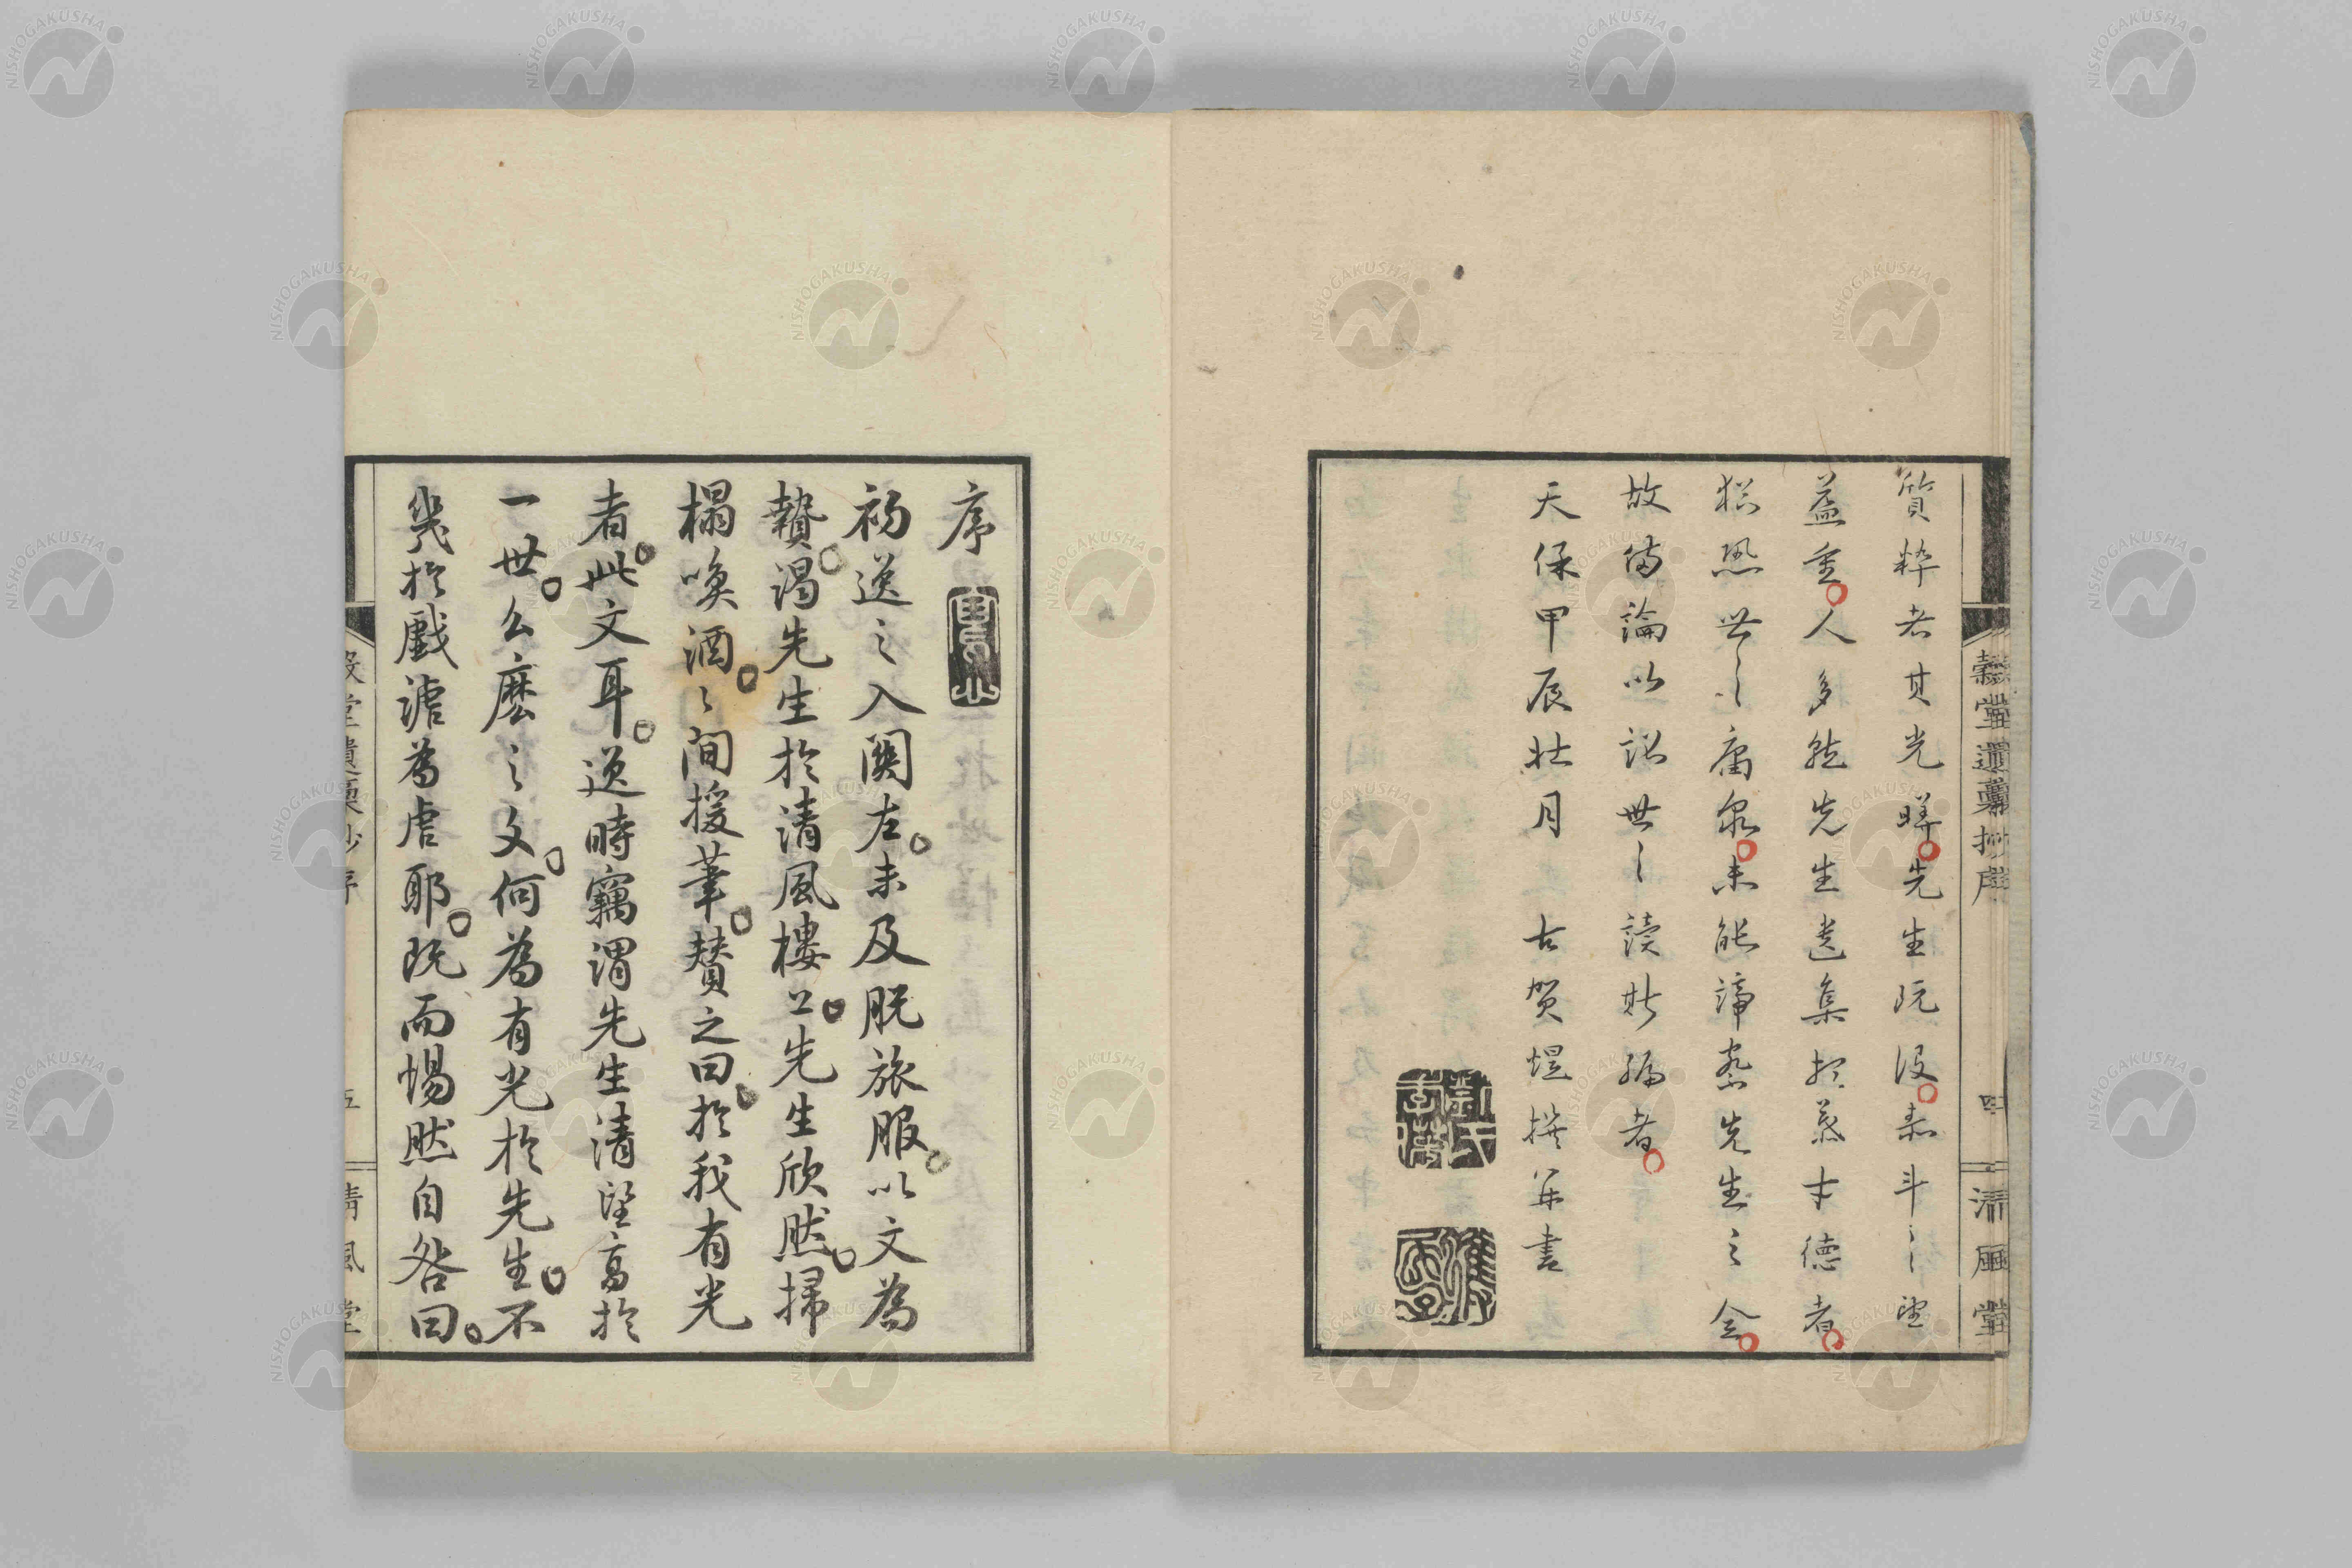 質粋者其光曄先生既没泰斗之望
益重人多就先生遺集想慕才德者
猶恐世之庸衆未能諦察先生之全
故備論以詔世之讀此編者
天保甲辰壮月　古賀煜撰并書
穀堂遺藁抄序
四
清風堂
序
初逸之入關左未及脱旅服以文為
贄謁先生於清風樓上先生欣然掃
榻喚酒々間援筆賛之曰於我有光
者此文耳逸時竊謂先生清望高於
一世么麽之文何為有光於先生不
幾於戲謔為虐耶既而惕然自咎曰
穀堂遺藁抄序
五
清風堂
NISHOGAKUSHA